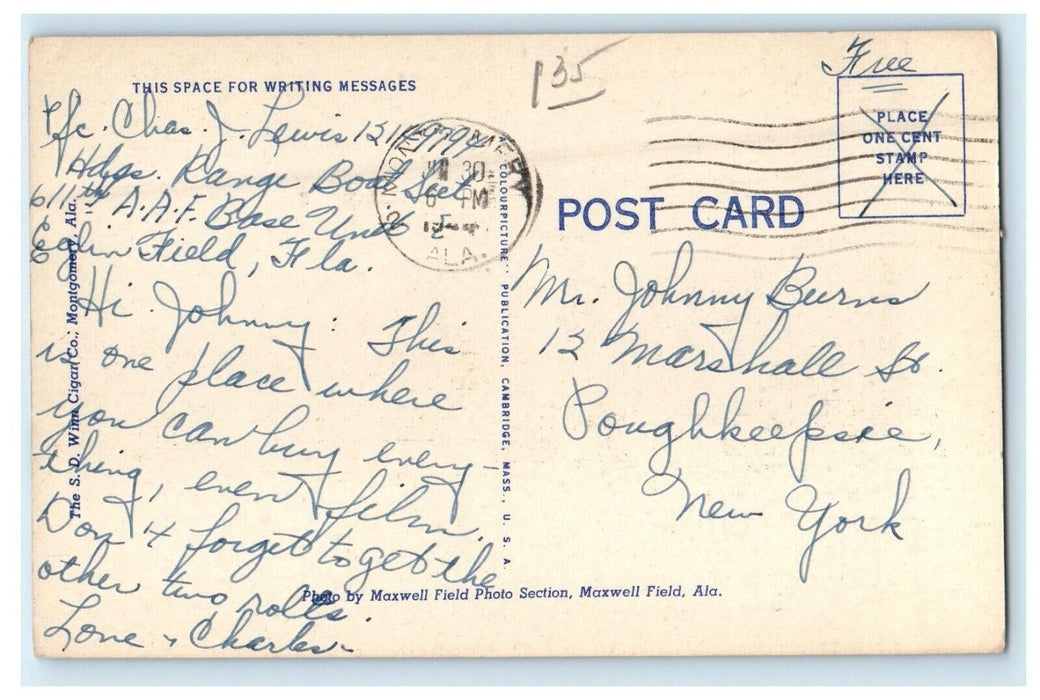 THIS SPACE FOR WRITING MESSAGES
Pfc. Chas. J. Lewis
Hdqs. Range Boat Sect.
611th A.A.F. Base Unit
Eglin Field, Fla.
Hi Johnny: This
is one place where
you can buy every-
thing, even film.
Don't forget to get the
other two rolls.
Love - Charles -
The S. D. Winn Cigar Co., Montgomery, Ala.
MONTGOMERY
30
6 PM
ALA.
"COLOURPICTURE" PUBLICATION, CAMBRIDGE, MASS., U. S. A.
135
Free
PLACE
ONE CENT
STAMP
HERE
POST CARD
Mr. Johnny Burns
12 Marshall St.
Poughkeepsie,
New York
Photo by Maxwell Field Photo Section, Maxwell Field, Ala.